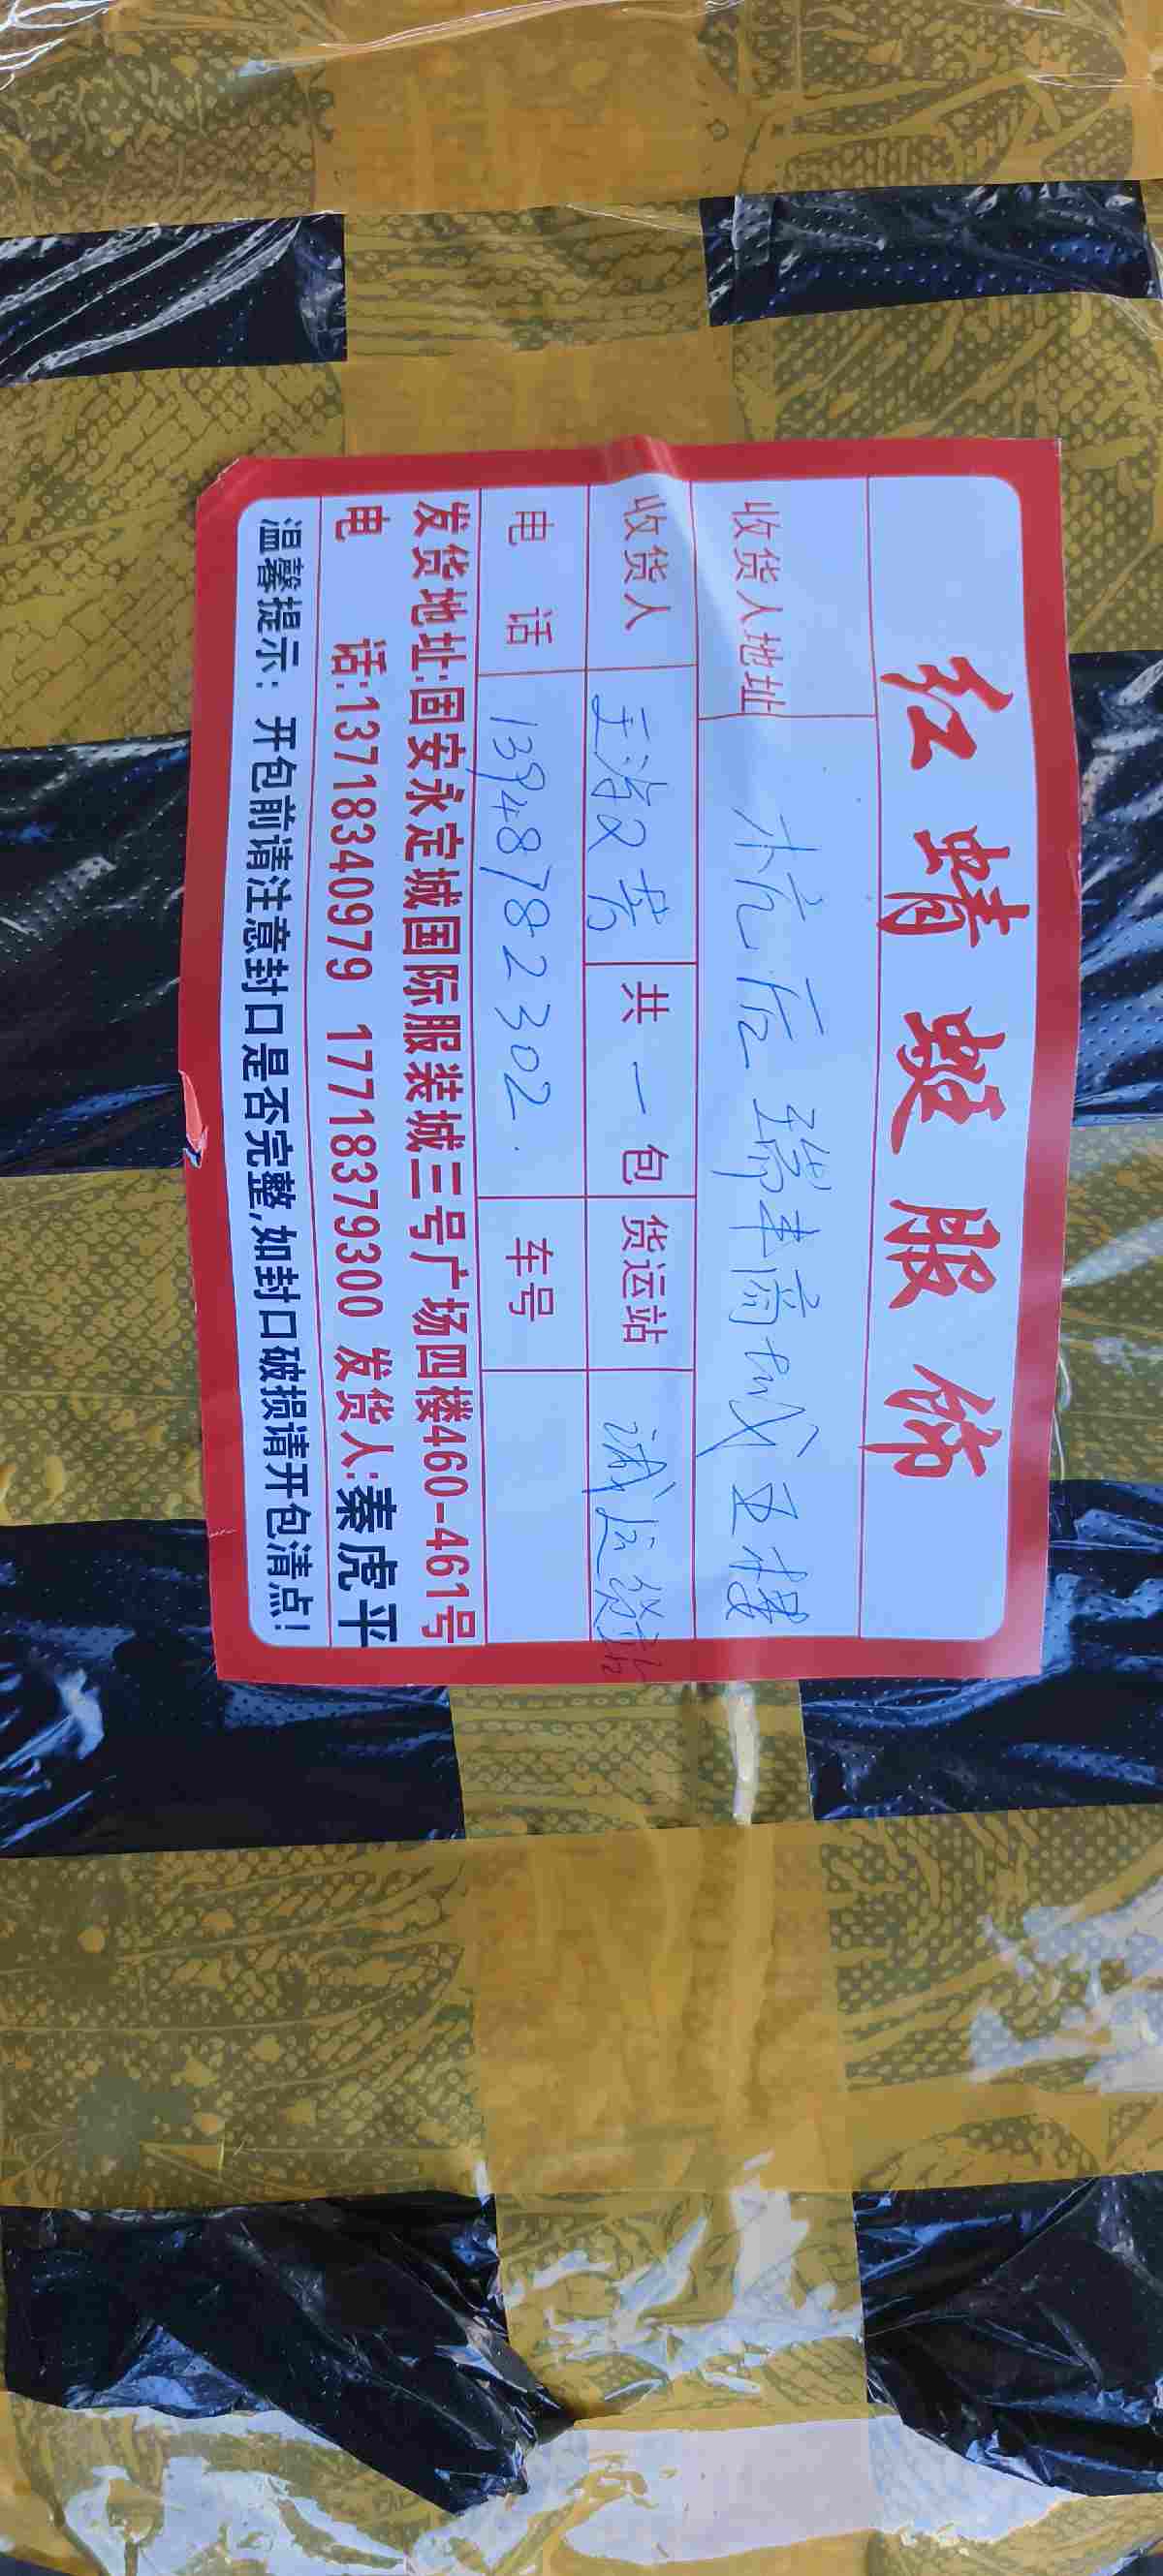 红蜻蜓服饰
收货人地址 杭后瑞丰商城五楼
收货人 王海芳 共一包 货运站 诚运货站
电话 13948782302. 车号
发货地址:固安永定城国际服装城三号广场四楼460-461号
电话:13718340979 17718379300 发货人:秦虎平
温馨提示: 开包前请注意封口是否完整,如封口破损请开包清点!